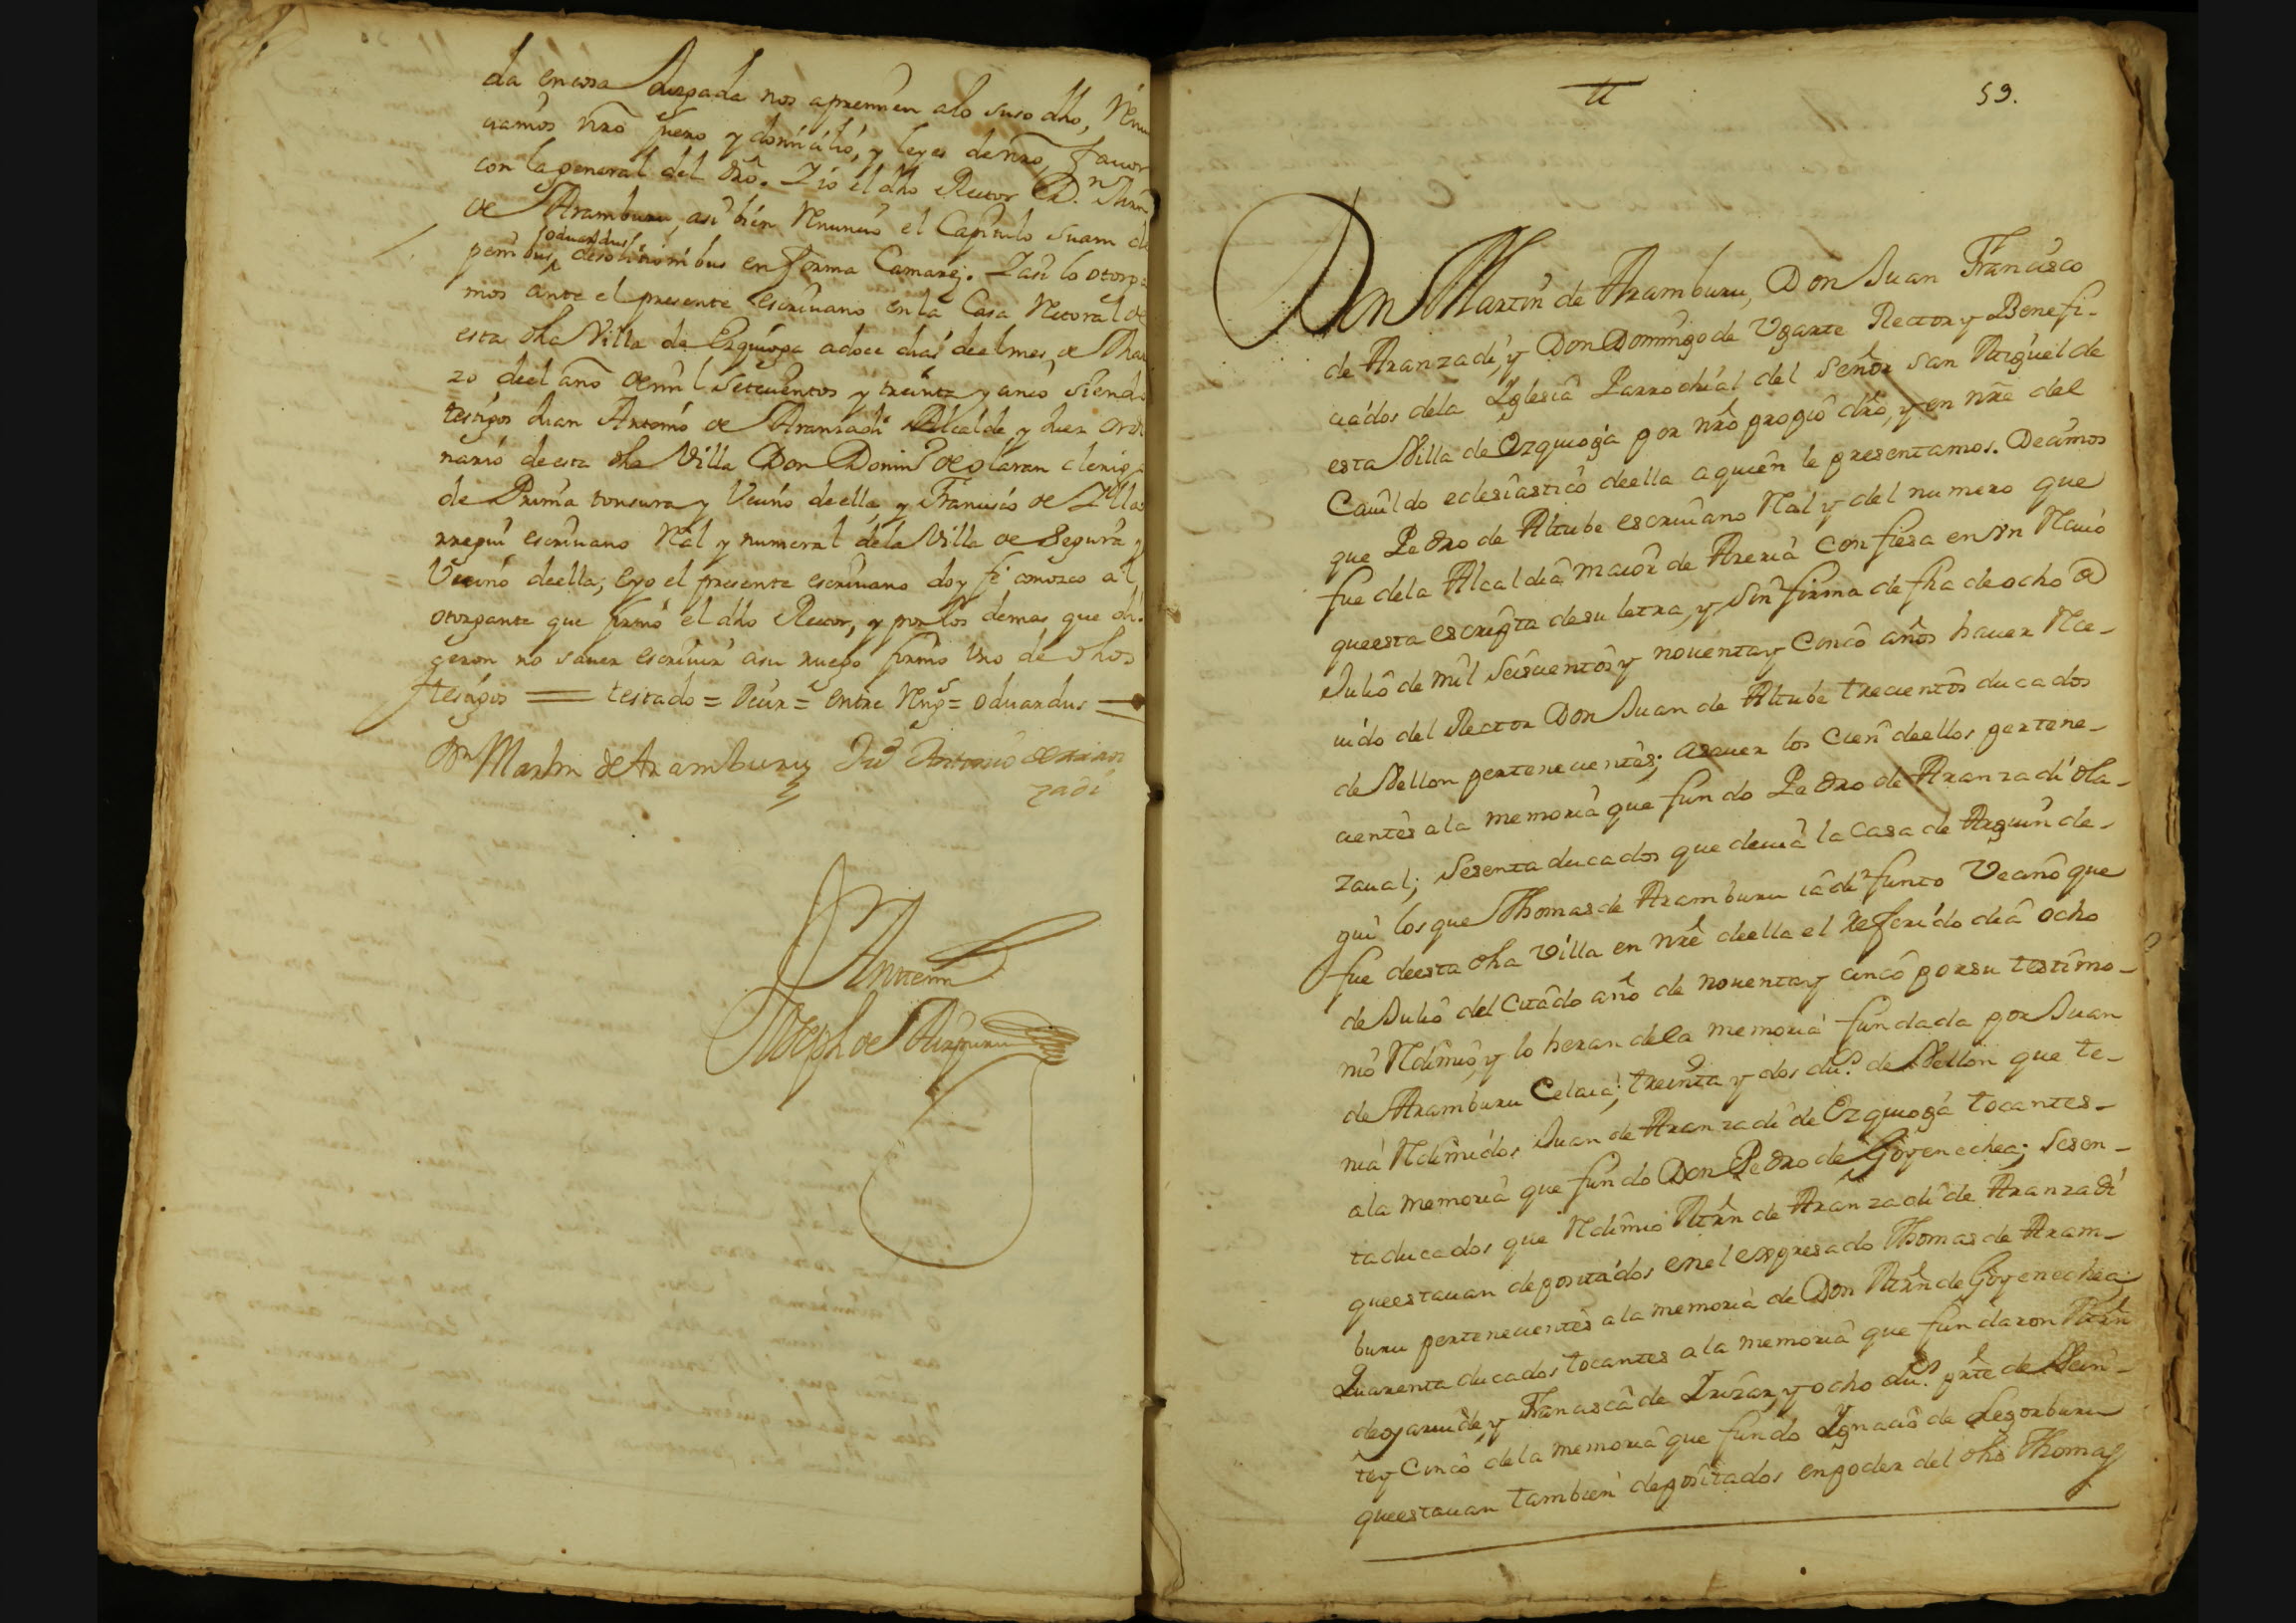 da en cosa Jusgada nos apremien alo suso dho, Renu
ciamos nrō fuero y domicilio, y leyes de nrō, fauor
con la general del drō. I io el dho Rector Dn. Mrn
de Aramburu, asi bien Renuncio el Capitulo suam de
penibus, oduardus de solutionibus en forma Camarē. I asi lo otorga
mos ante el presente escriuano en la Casa Retoral de
esta dha Villa de Ezquioga adoce dias deel mes, de Mar
zo deel año de mil Setecientos y treinta y cinco siendo
testigos Juan Antonio de Aranzadi Alcalde y Juez ordi
nario de esta dha Villa Don Domingo de olaran clerigo
de Prima tonsura y Vecino de ella, y Francisco de Illa
rregui escriuano Rāl y numeral dela Villa de Segura y
= Vecino deella; Eyo el presente escriuano doy fē conozco al
otorgante que firmó el dho Rector, y por los demas que di
geron no sauer escriuir asu ruego firmo Vno de dhos
testigos = testado = Decir = entre Rng.s = oduardus =
Dn Martin de Aramburu Jua Antonio de Aran
zadi
Antemi
Joseph de Aizpuru
tt
59.
Don Martin de Aramburu, Don Juan Francisco
de Aranzadi, y Don Domingo de Vgarte Rector y Benefi-
ciados dela Yglesia Parrochial del Señor San Miguel de
esta Villa de Ezquioga por nrō propio drō, y en nrē del
Cauildo eclesiastico deella aquien le presentamos. Decimos
que Pedro de Altube escriuano Rāl y del numero que
fue dela Alcaldia maior de Areria Confiesa en Vn Reciuo
queesta escripta desu letra, y Sin firma de fha de ocho de
Julio de mil Seiscientos y nouentay Cinco años hauer Rce-
uido del Rector Don Juan de Altube trecientos ducados
de Vellon pertenecientes; asauer los Cien deellos pertene-
cientes ala memoria que fundo Pedro de Aranzadi ola-
zaual; Sesenta ducados que deuia la Casa de Arguinde-
gui los que Thomas de Aramburu iâ difunto Vecino que
fue deesta dha Villa en nrē deella el Referido dia ocho
de Julio del Citado año de nouentay cinco por su testimo-
nio Rdimio, y lo heran dela memoria fundada por Juan
de Aramburu Celaia; treinta y dos du.s de Vellon que te-
nia Rdimidos Juan de Aranzadi de Ezquioga tocantes-
ala memoria que fundo Don Pedro de Goyenechea; Sesen-
ta ducados que Rdimio Mrn de Aranzadi de Aranzadi
queestauan depositados enel expresado Thomas de Aram-
buru pertenecientes ala memoria de Don Mrn de Goyenechea;
Quarenta ducados tocantes ala memoria que fundaron Mrn
de oyaruide, y Francisca de Yrizar, y ocho du.s prte de Vein-
tey Cinco dela memoria que fundo Ygnacio de Legorburu
queestauan tambien depositados enpoder del dho Thomas